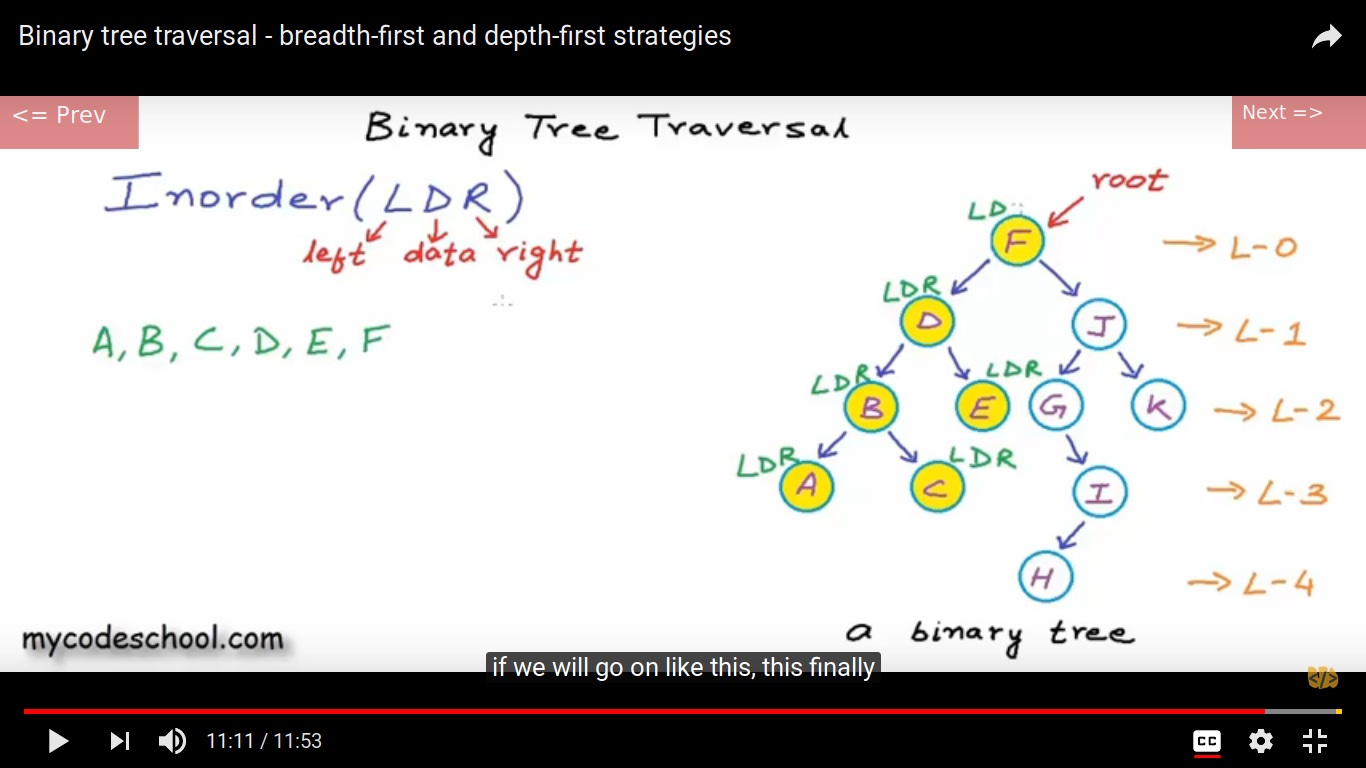 Binary tree traversal - breadth-first and depth-first strategies
<= Prev
Next =>
Binary Tree Traversal
Inorder(LDR)
left data right
A, B, C, D, E, F
root
LD
F
L-0
LDR
D
J
L-1
LDR
LDR
B
E
G
K
L-2
LDR
LDR
A
C
I
L-3
H
L-4
a binary tree
mycodeschool.com
if we will go on like this, this finally
</>
11:11 / 11:53
CC